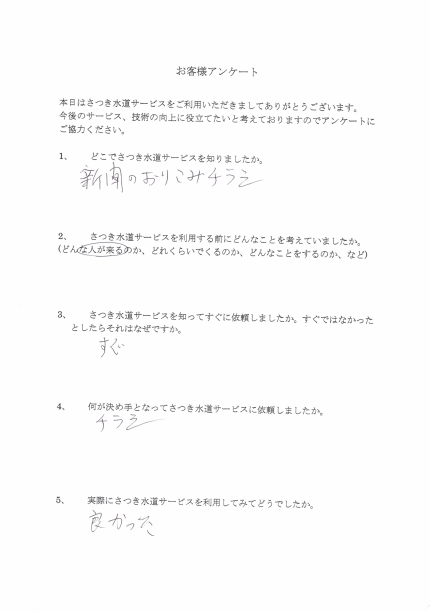 お客様アンケート
本日はさつき水道サービスをご利用いただきましてありがとうございます。
今後のサービス、技術の向上に役立てたいと考えておりますのでアンケートに
ご協力ください。
1、 どこでさつき水道サービスを知りましたか。
新聞のおりこみチラシ
2、 さつき水道サービスを利用する前にどんなことを考えていましたか。
(どんな人が来るのか、どれくらいでくるのか、どんなことをするのか、など)
3、 さつき水道サービスを知ってすぐに依頼しましたか。すぐではなかった
としたらそれはなぜですか。
すぐ
4、 何が決め手となってさつき水道サービスに依頼しましたか。
チラシ
5、 実際にさつき水道サービスを利用してみてどうでしたか。
良かった